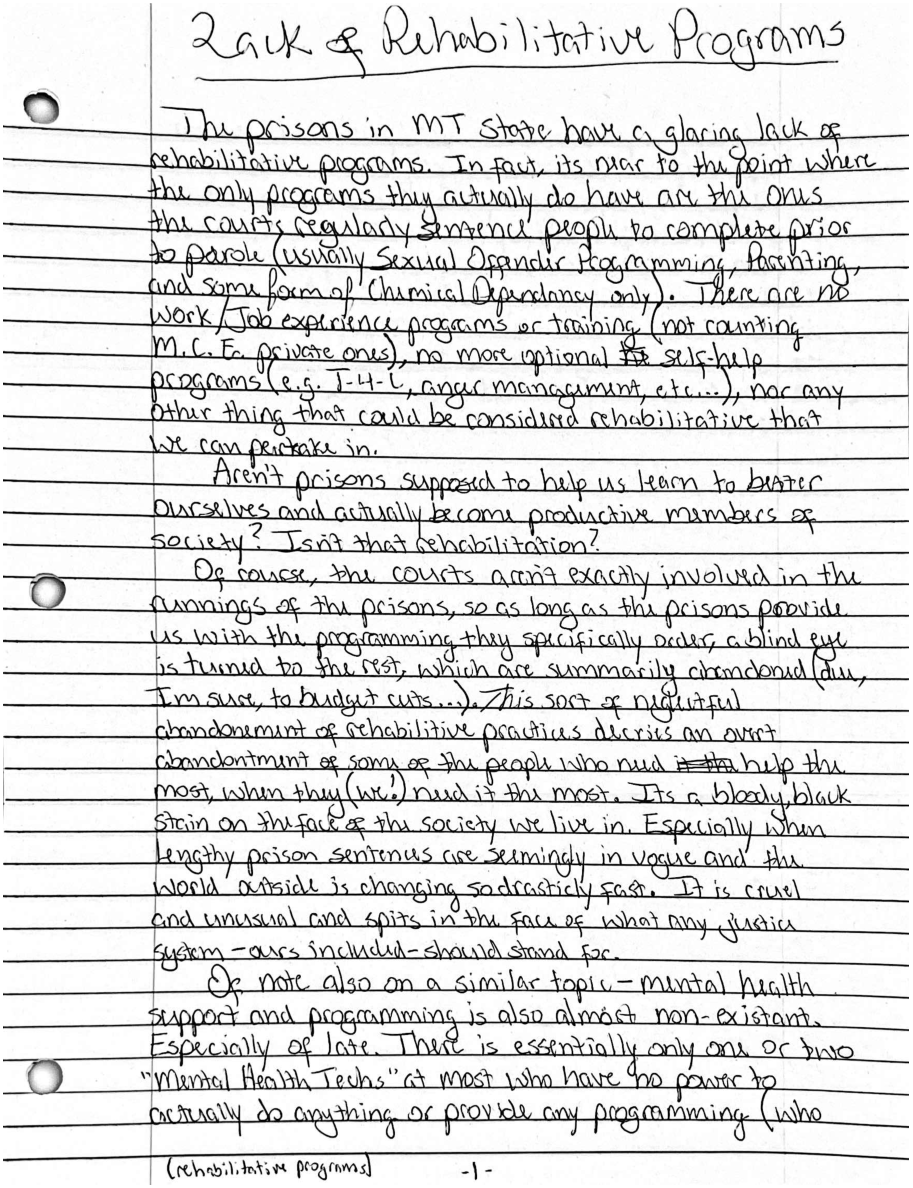 Lack of Rehabilitative Programs
The prisons in MT State have a glaring lack of
rehabilitative programs. In fact, its near to the point where
the only programs they actually do have are the ones
the courts regularly sentence people to complete prior
to parole (usually Sexual Offender Programming, Parenting,
and some form of Chemical Dependancy only). There are no
work/Job experience programs or training (not counting
M.C.E. private ones), no more optional self-help
programs (e.g. T-4-C, anger management, etc...), nor any
other thing that could be considered rehabilitative that
we can partake in.
Aren't prisons supposed to help us learn to better
ourselves and actually become productive members of
society? Isn't that rehabilitation?
Of course, the courts aren't exactly involved in the
runnings of the prisons, so as long as the prisons provide
us with the programming they specifically order, a blind eye
is turned to the rest, which are summarily abandoned (due,
I'm sure, to budget cuts...). This sort of neglectful
abandonement of rehabilitive practices decries an overt
abandontment of some of the people who need help the
most, when they (we!) need it the most. Its a bloody, black
stain on the face of the society we live in. Especially when
lengthy prison sentences are seemingly in vogue and the
world outside is changing so drasticly fast. It is cruel
and unusual and spits in the face of what any justice
system - ours included - should stand for.
Of note also on a similar topic - mental health
support and programming is also almost non-existant.
Especially of late. There is essentially only one or two
"Mental Health Techs" at most who have no power to
actually do anything or provide any programming (who
(rehabilitative programs) -1-